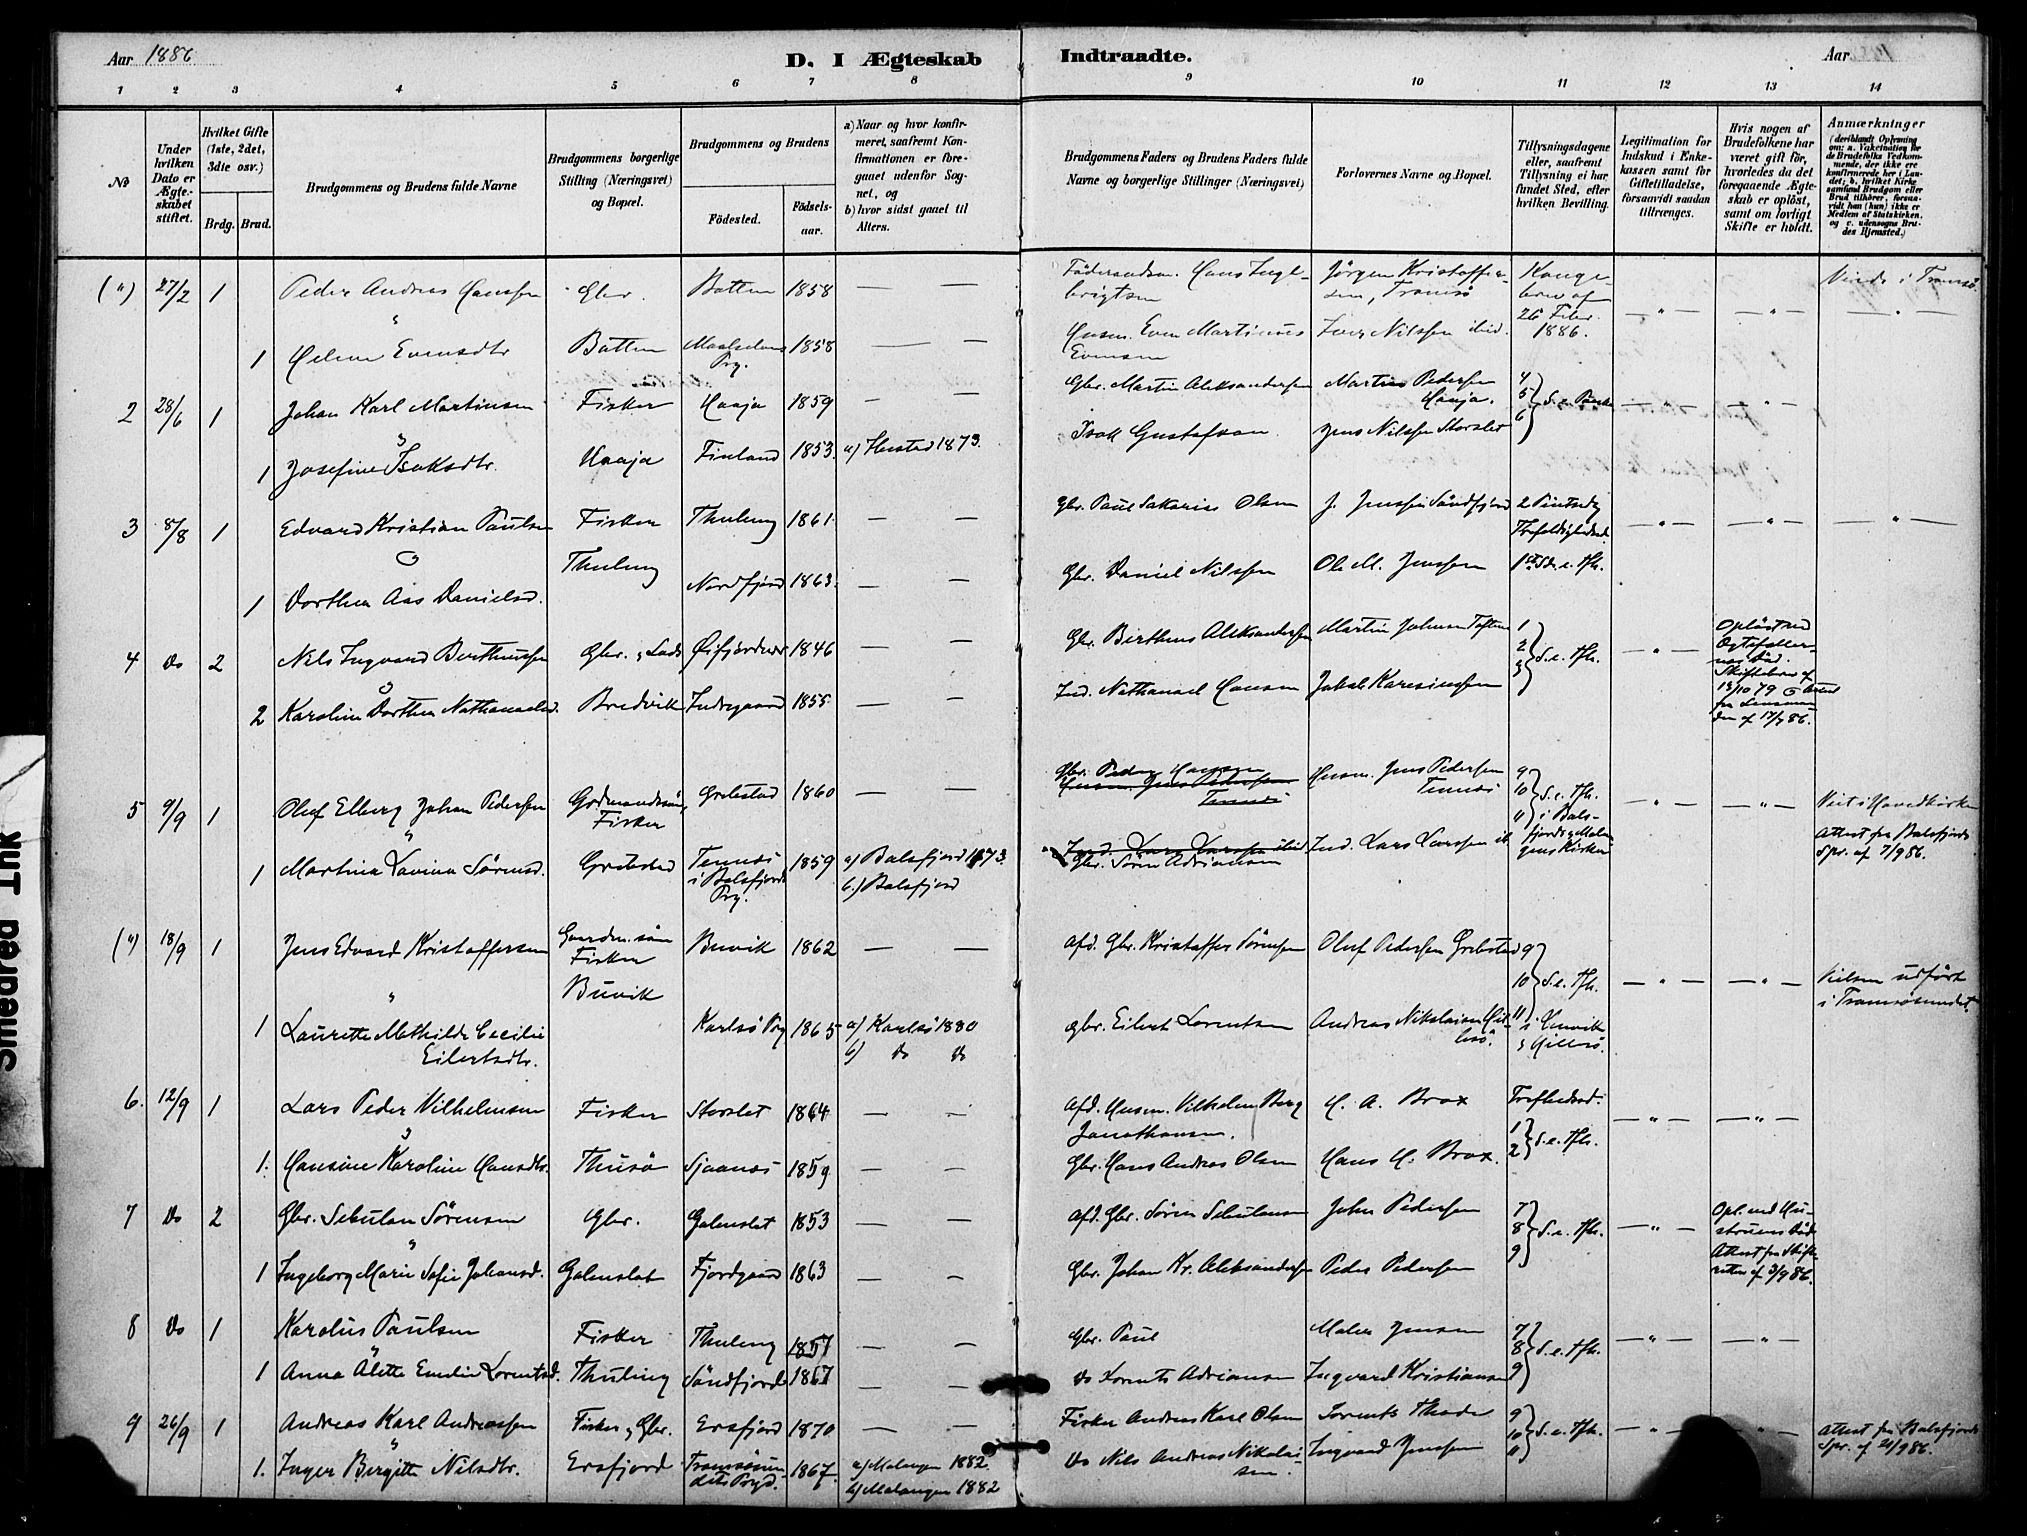 Aar 1886.
D. I Ægteskab Indtraadte.
Aar
1 2 3 4 5 6 7 8 9 10 11 12 13 14
No
Under hvilken Dato er Ægteskabet stiftet.
Hvilket Gifte (1ste, 2det, 3die osv.)
Brdg. Brud.
Brudgommens og Brudens fulde Navne
Brudgommens borgerlige Stilling (Næringsvei) og Bopæl.
Brudgommens og Brudens
Födested. Födselsaar.
a) Naar og hvor konfirmeret, saafremt Konfirmationen er foregaaet udenfor Sognet, og
b) hvor sidst gaaet til Alters.
Brudgommens Faders og Brudens Faders fulde Navne og borgerlige Stillinger (Næringsvei)
Forlovernes Navne og Bopæl.
Tillysningsdagene eller, saafremt Tillysning ei har fundet Sted, efter hvilken Bevilling.
Legitimation for Indskud i Enkekassen samt for Giftetilladelse, forsaavidt saadan tiltrænges.
Hvis nogen af Brudefolkene har været gift för, hvorledes da det foregaaende Ægteskab er oplöst, samt om lovligt Skifte er holdt.
Anmærkninger (deriblandt Oplysning om: a. Vakcination for de Brudefolks Vedkommende, der ikke ere konfirmerede her i Landet; b. hvilket Kirkesamfund Brudgom eller Brud tilhörer, forsaavidt han (hun) ikke er Medlem af Statskirken, og c. udensogns Brudes Hjemsted.)
(") 27/2 1 Peder Andreas Hanssen Gbr. Botten 1858 Föderaadsm. Hans Ingebrigtsen Jörgen Kristoffersen, Tromsö Kongebrev af 26 Febr. 1886. Viede i Tromsö.
1 Helene Evensdtr Botten Maalselvens Prg. 1858 Husm. Even Martinus Evensen Iver Nilssen ibid.
2 28/6 1 Johan Karl Martinsen Fisker Haaja 1859 Gbr. Martin Aleksandersen Martin Pedersen Haaja. 4 5 6 S. e. Paaske
1 Josefine Isaksdtr. Haaja Finland 1853. a) Ibestad 1873. Isak Gustafson Jens Nilssen Storslet
3 8/8 1 Edvard Kristian Paulsen Fisker Thuleng 1861 Gbr. Paul Sakarias Olsen J. Jenssen Sandfjord 2 Pintsedg Trefoldighedsd.
Thuleng
1 Dorthea Aas Danielsd. Nordfjord 1863. Gbr. Daniel Nilssen Ole M. Jenssen 1ste Sd. e. Tfh.
4 Do 2 Nils Ingvard Bertheussen Gbr. Öifjorden 1846 Gbr. Birtheus Aleksandersen Martin Johnsen Toften 1 2 3 S. e. Tfh. Oplöst ved Ægtefællernes Död.
2 Karoline Dorthea Nathanaelsd. Bredvik Indregaard 1855 Ind. Nathanael Hansen Jakob Karesiussen
5 9/9 1 Olaf Elberg Johan Pedersen Gaardmandssön, Fisker Grebstad 1860 Gbr. Peder Hansen
Husm. Jens Pedersen Tennes
Husm. Jens Pedersen Tennes 9 10 11 S. e. Tfh. i Balsfjords & Malangens Kirker Viet i Hovedkirken
1 Martina Lavina Sörensd. Grebstad Tennes i Balsfjords Prg. 1859 a) Balsfjord 1873. b.) Balsfjord Ind. Lars Larssen ibid
Gbr. Sören Adriansen
Ind. Lars Larssen ib Attest fra Balsfjords Spr. af 7/9 86.
(") 18/9 1 Jens Edvard Kristoffersen Gaardm. sön Fisker Buvik 1862 Afd. Gbr. Kristoffer Sörensen Oluf Pedersen Grebstad 9 10 11 S. e. Tfh. Vielsen udfört i Tromsösundet.
Buvik
1 Laurette Mathilde Cecilie Eilertsdtr. Karlsö Prg 1865 a) Karlsö 1880 b) Do Do Gbr. Eilert Lorentsen Andreas Nikolaisen Hillesö.
6. 12/9 1 Lars Peder Vilhelmsen Fisker Storslet 1864 Afd. Husm. Vilhelm Berg Jonathansen. H. A. Brox Trefhedssd. 1 2 S. e. Tfh.
1. Hansine Karoline Hansdtr. Thusö Sjaanes 1859 Gbr. Hans Andreas Olsen Hans H. Brox.
7 Do 2 Gbr. Sebulon Sörensen Gbr. Galenslet 1853 Afd. Gbr. Sören Sebulonsen John Pedersen 7 8 9 S. e. Tfh. Opl. ved Hustruens Död Attest fra Skifteretten af 3/9 86.
1 Ingeborg Marie Sofie Johansd. Galenslet Fjordgaard 1863 Gbr. Johan Kr. Aleksandersen Peder Pedersen
8 Do 1 Karolus Paulsen Fisker Thuleng 1857 Gbr. Paul Maler Jensen 7 8 9 S. e. Tfh.
1 Anna Alette Emelie Lorentsd. Thuleng Sandfjord 1867 Do Lorents Adriansen Ingvard Kristiansen
9 26/9 1 Andreas Karl Andreassen Fisker & Gbr. Ersfjord 1870 Fisker Andreas Karl Olsen Lorents Thode 9 10 11 S. e. Tfh. Attest fra Balsfjords Spr. af 21/9 86.
1. Inger Birgitte Nilsdtr. Ersfjord Tromsösundets Prgd. 1867. a) Malangen 1882. b) Malangen 1882 Do Nils Andreas Nikolaisen. Ingvard Jenssen
Smedred Ink